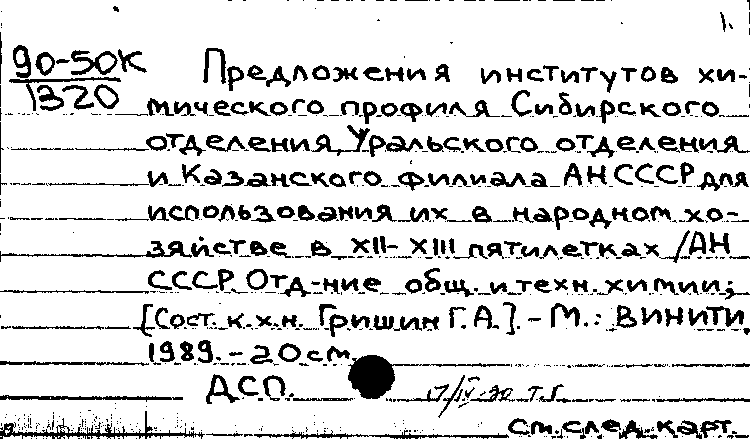 1.
90-50К Предложения институтов хи-
1320 мического профиля Сибирского
отделения, Уральского отделения
и Казанского филиала АН СССР для
использования их в народном хо-
зяйстве в XII-XIII пятилетках /АН
СССР. Отд-ние общ. и техн. химии;
[Сост. к.х.н. Гришин Г.А.]. - М.: ВИНИТИ,
1989. - 20 см.
ДСП. 17/IV-90 т.г.
См. след. карт.